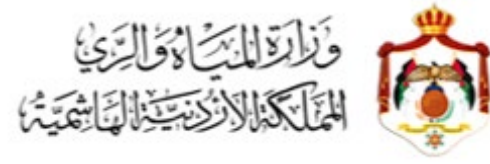 وَزَارَة المِيَاهْ وَالرَّي
المَمْلَكَة الأُرْدُنِيَّة الهَاشِمِيَّة